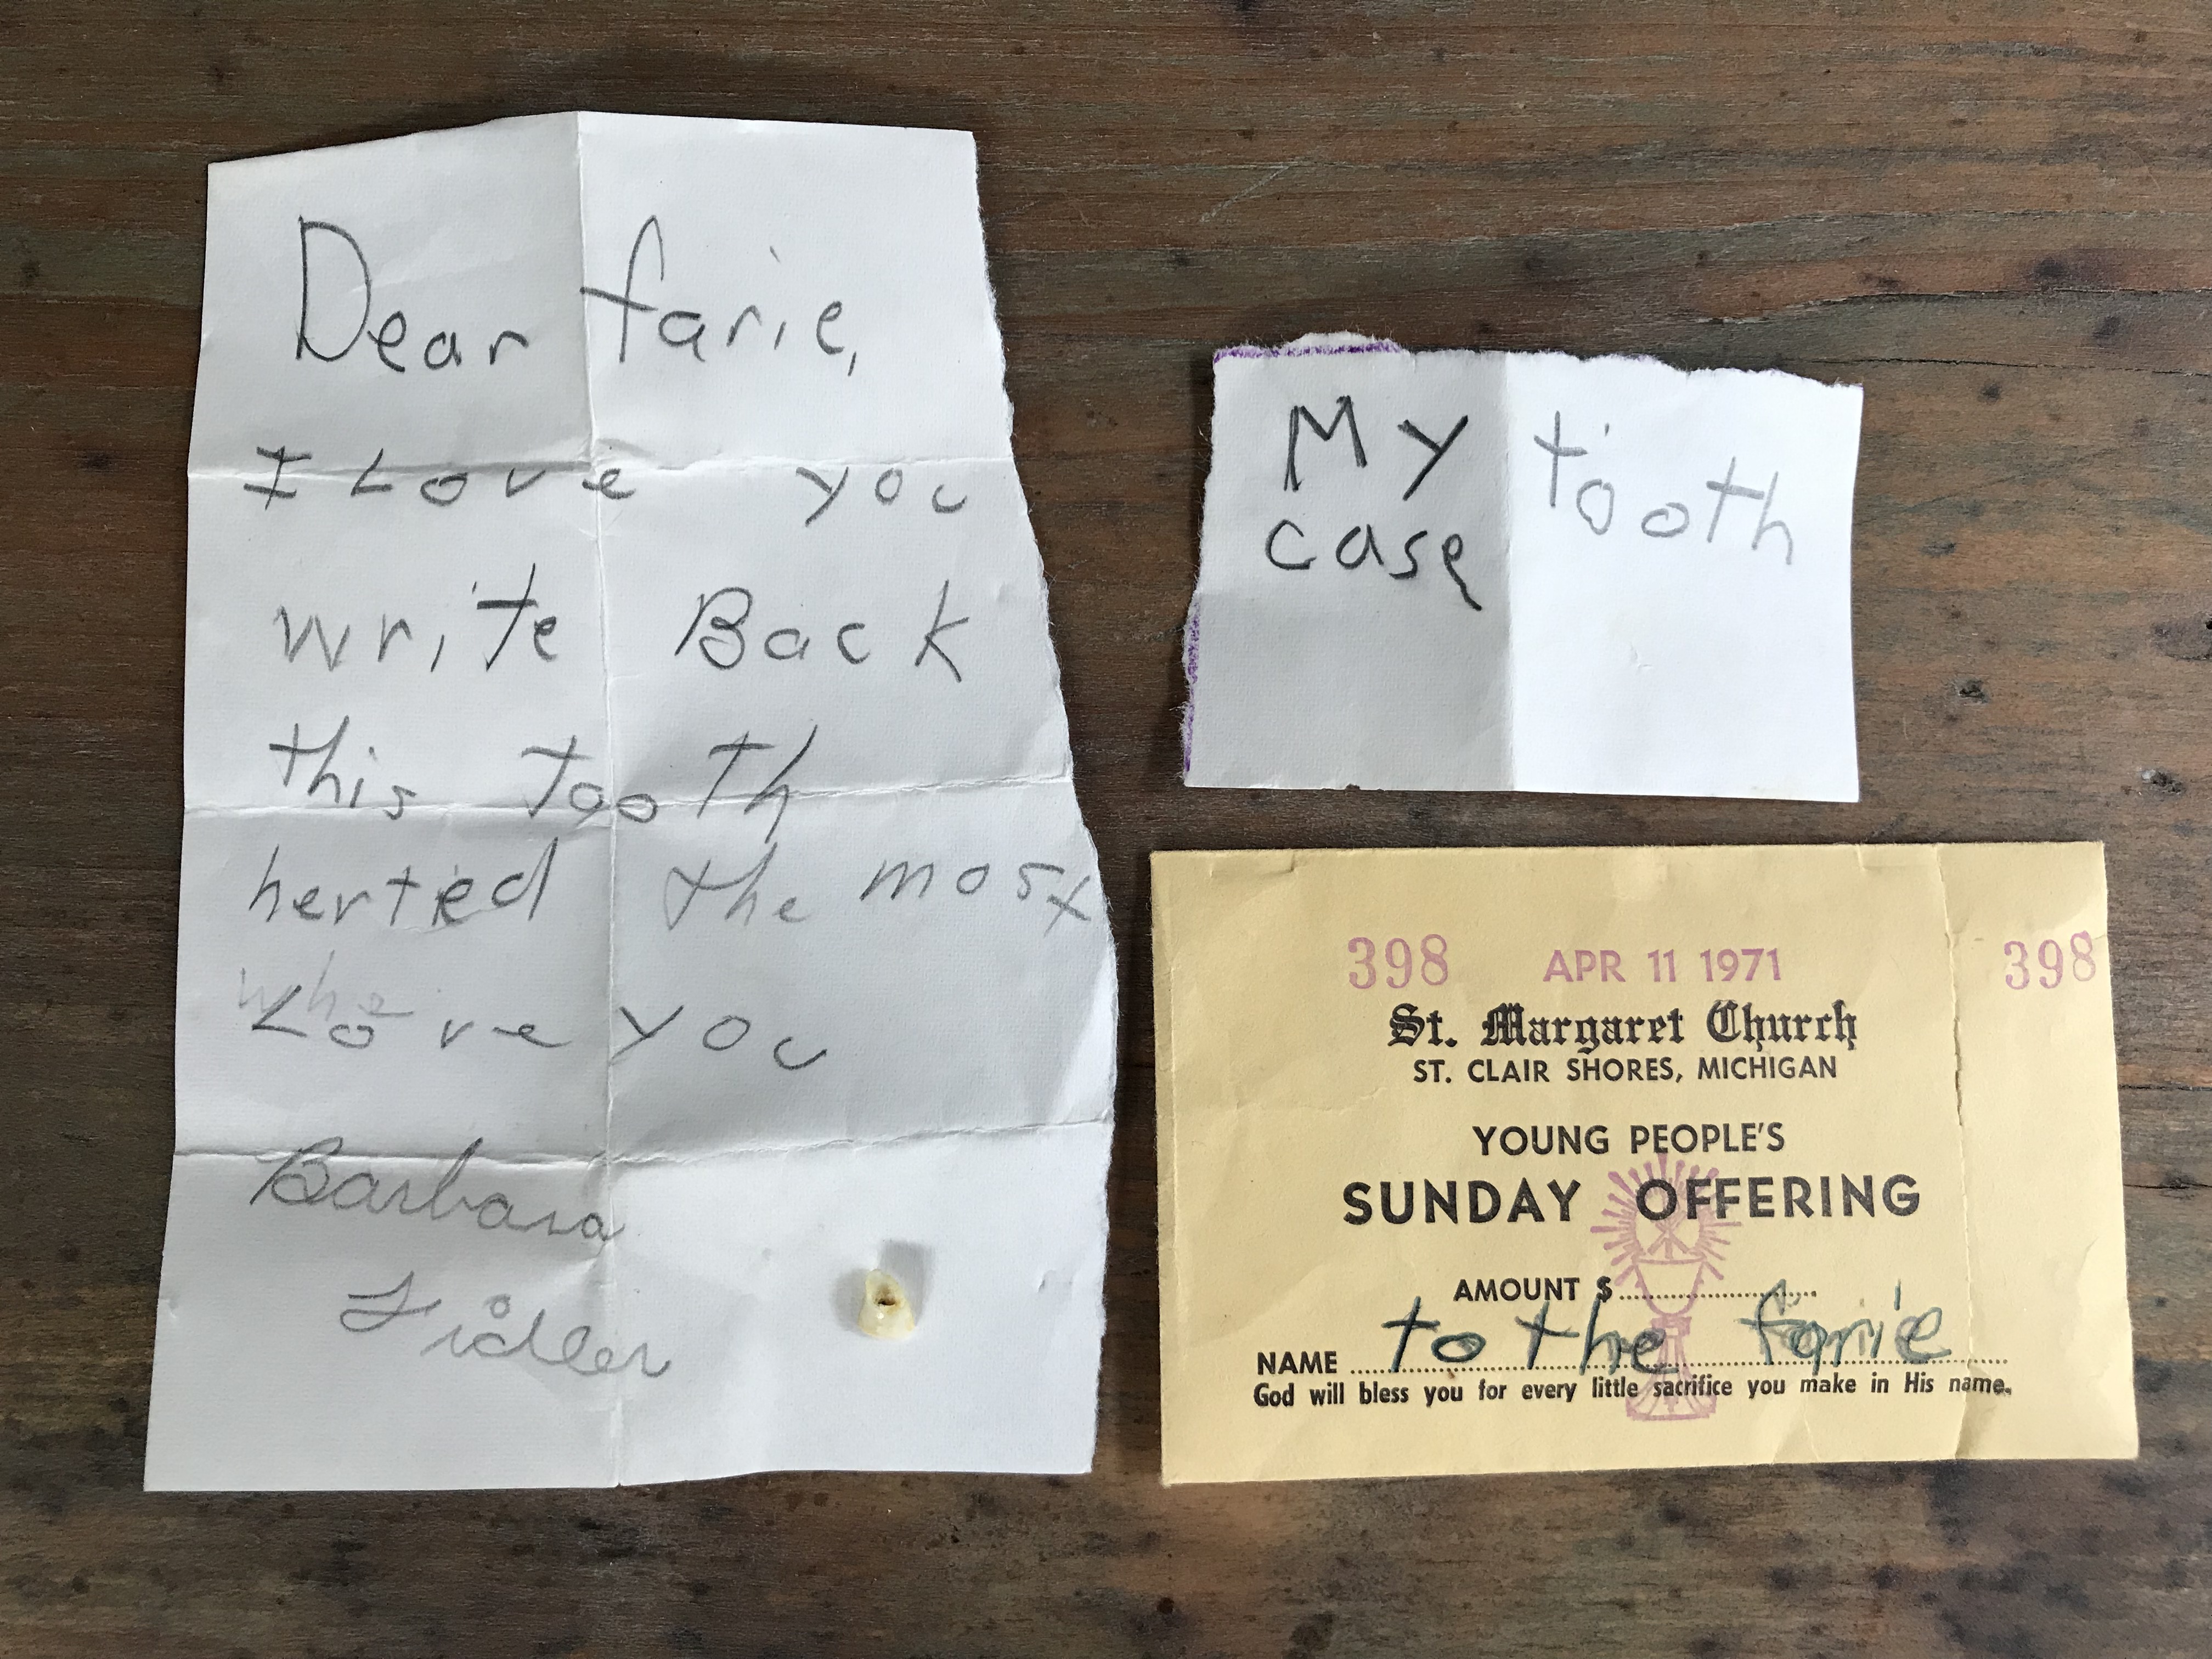 Dear farie,
I Love you
write Back
this tooth
herted the most
whe
Love you
Barbara
Fidler
My tooth
case
398 APR 11 1971 398
St. Margaret Church
ST. CLAIR SHORES, MICHIGAN
YOUNG PEOPLE'S
SUNDAY OFFERING
AMOUNT $
NAME to the farie
God will bless you for every little sacrifice you make in His name.